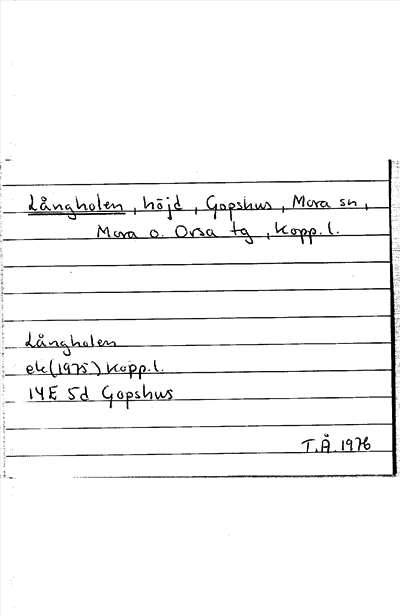 Långholen, höjd, Gopshus, Mora sn,
Mora o. Orsa tg, Kopp. l.
Långholen
ek (1975) Kopp. l.
14E 5d Gopshus
T.Å. 1976